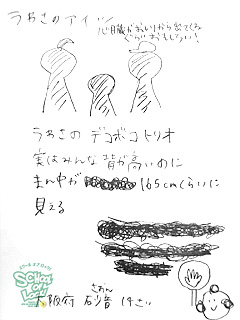 うわさのアイツ
心臓がおしりから出てくる
ぐらいおもしろい!
うわさの デコボコトリオ
実はみんな 背が高いのに
まん中が 165cmくらいに
見える
SCHOOL OF LOCK!
さおん
大阪府 砂音 14さい